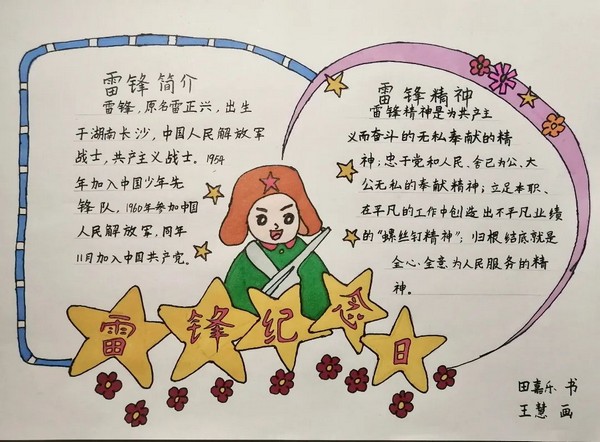 雷锋简介
雷锋,原名雷正兴,出生
于湖南长沙,中国人民解放军
战士,共产主义战士。1954
年加入中国少年先
锋队,1960年参加中国
人民解放军,同年
11月加入中国共产党。
雷锋精神
雷锋精神是为共产主
义而奋斗的无私奉献的精
神;忠于党和人民、舍己为公、大
公无私的奉献精神;立足本职、
在平凡的工作中创造出不平凡业绩
的“螺丝钉精神”;归根结底就是
全心全意为人民服务的精
神。
雷锋纪念日
田嘉乐 书
王慧 画